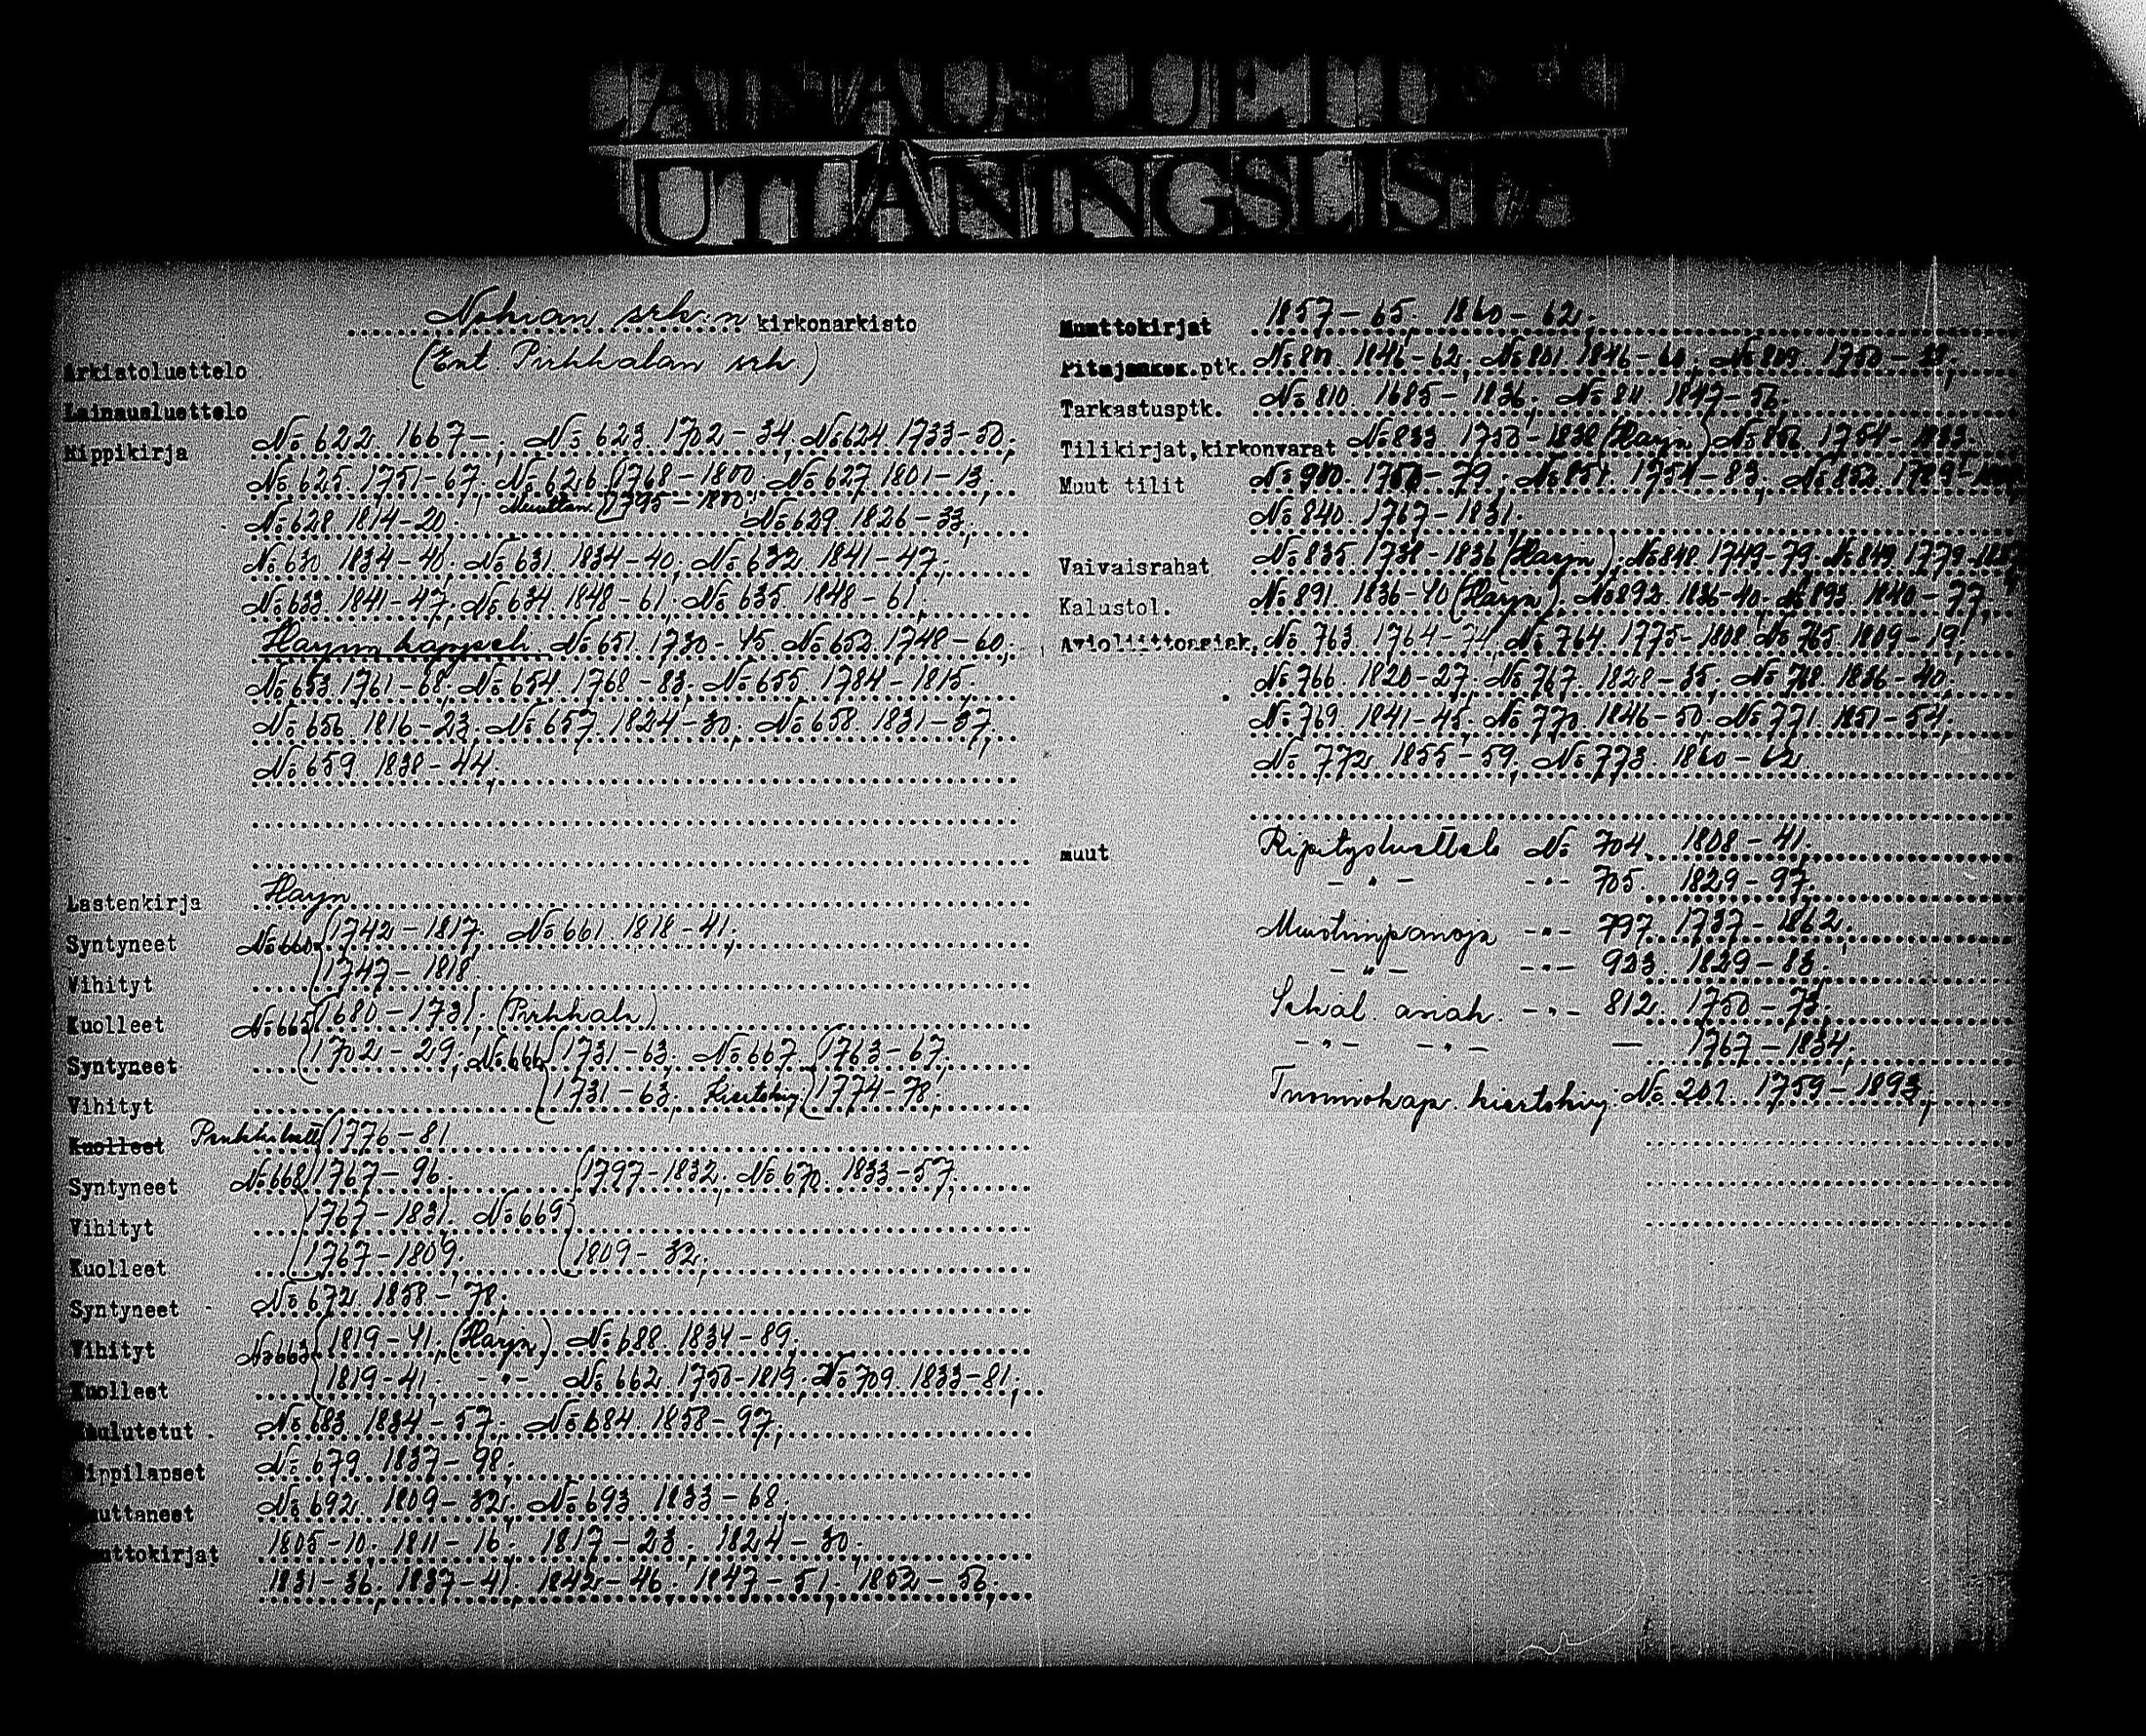 LAINAUSLUETTELO
UTLÅNINGSLISTA
Nokian srk:n kirkonarkisto
(Ent. Pirkkalan srk)
Arkistoluettelo
Lainausluettelo
Rippikirja № 622. 1667-; № 623. 1702-34; № 624. 1733-50;
№ 625. 1751-67; № 626 {1768-1800; № 627. 1801-13;
Muuttan. {1795-1800;
№ 628. 1814-20; № 629. 1826-33;
№ 630. 1834-40; № 631. 1834-40; № 632. 1841-47;
№ 633. 1841-47; № 634. 1848-61; № 635. 1848-61;
Harjun kappseh. № 651. 1730-45. № 652. 1748-60;
№ 653. 1761-68; № 654. 1768-83; № 655. 1784-1815;
№ 656. 1816-23; № 657. 1824-30; № 658. 1831-37;
№ 659. 1838-44;
Lastenkirja Harju
Syntyneet № 660 {1742-1817; № 661. 1818-41;
Vihityt {1747-1818.
Kuolleet № 665 {1680-1731; (Pirkkala)
Syntyneet {1702-29; № 666 {1731-63; № 667. {1763-67;
Vihityt {1731-63; Kiertokirj. {1774-78;
Kuolleet {1776-81
Syntyneet № 668 {1767-96; {1797-1832; № 670. 1833-57;
Vihityt {1767-1831; № 669
Kuolleet {1767-1809; {1809-32;
Syntyneet № 672. 1858-78;
Vihityt № 663 {1819-41; (Harju) № 688. 1834-89;
Kuolleet {1819-41; -"- № 662. 1750-1819; № 709. 1833-81;
Kuulutetut № 683. 1834-57; № 684. 1858-97;
Rippilapset № 679. 1837-98;
Muuttaneet № 692. 1809-32; № 693. 1833-68;
Muuttokirjat 1805-10; 1811-16; 1817-23; 1824-30;
1831-36; 1837-41; 1842-46; 1847-51; 1852-56;
Muuttokirjat 1857-65; 1860-62;
Pitäjänkok.ptk. 1846-62; № 801. 1846-60;
Tarkastusptk. № 810. 1685-1836; № 811. 1847-56;
Tilikirjat, kirkonvarat № 833. 1750-1838 (Harju)
Muut tilit № 851. 1754-83;
№ 840. 1767-1831;
Vaivaisrahat № 835. 1738-1836 (Harju); № 848. 1749-79; № 849. 1779-
Kalustol. № 891. 1836-40 (Harju); № 892. 1836-40; № 893. 1840-77;
Avioliittoasiak. № 763. 1764-74; № 764. 1775-1808; № 765. 1809-19;
№ 766. 1820-27; № 767. 1828-35; № 768. 1836-40;
№ 769. 1841-45; № 770. 1846-50; № 771. 1851-54;
№ 772. 1855-59; № 773. 1860-62
muut Ripitysluettelo № 704. 1808-41.
-"- -"- 705. 1829-97.
Muistiinpanoja -"- 797. 1737-1862;
-"- -"- 923. 1829-83.
Sekal. asiak. -"- 812. 1750-73;
-"- -"- - 1767-1834;
Tuomiokap. kiertokirj. № 201. 1759-1893;